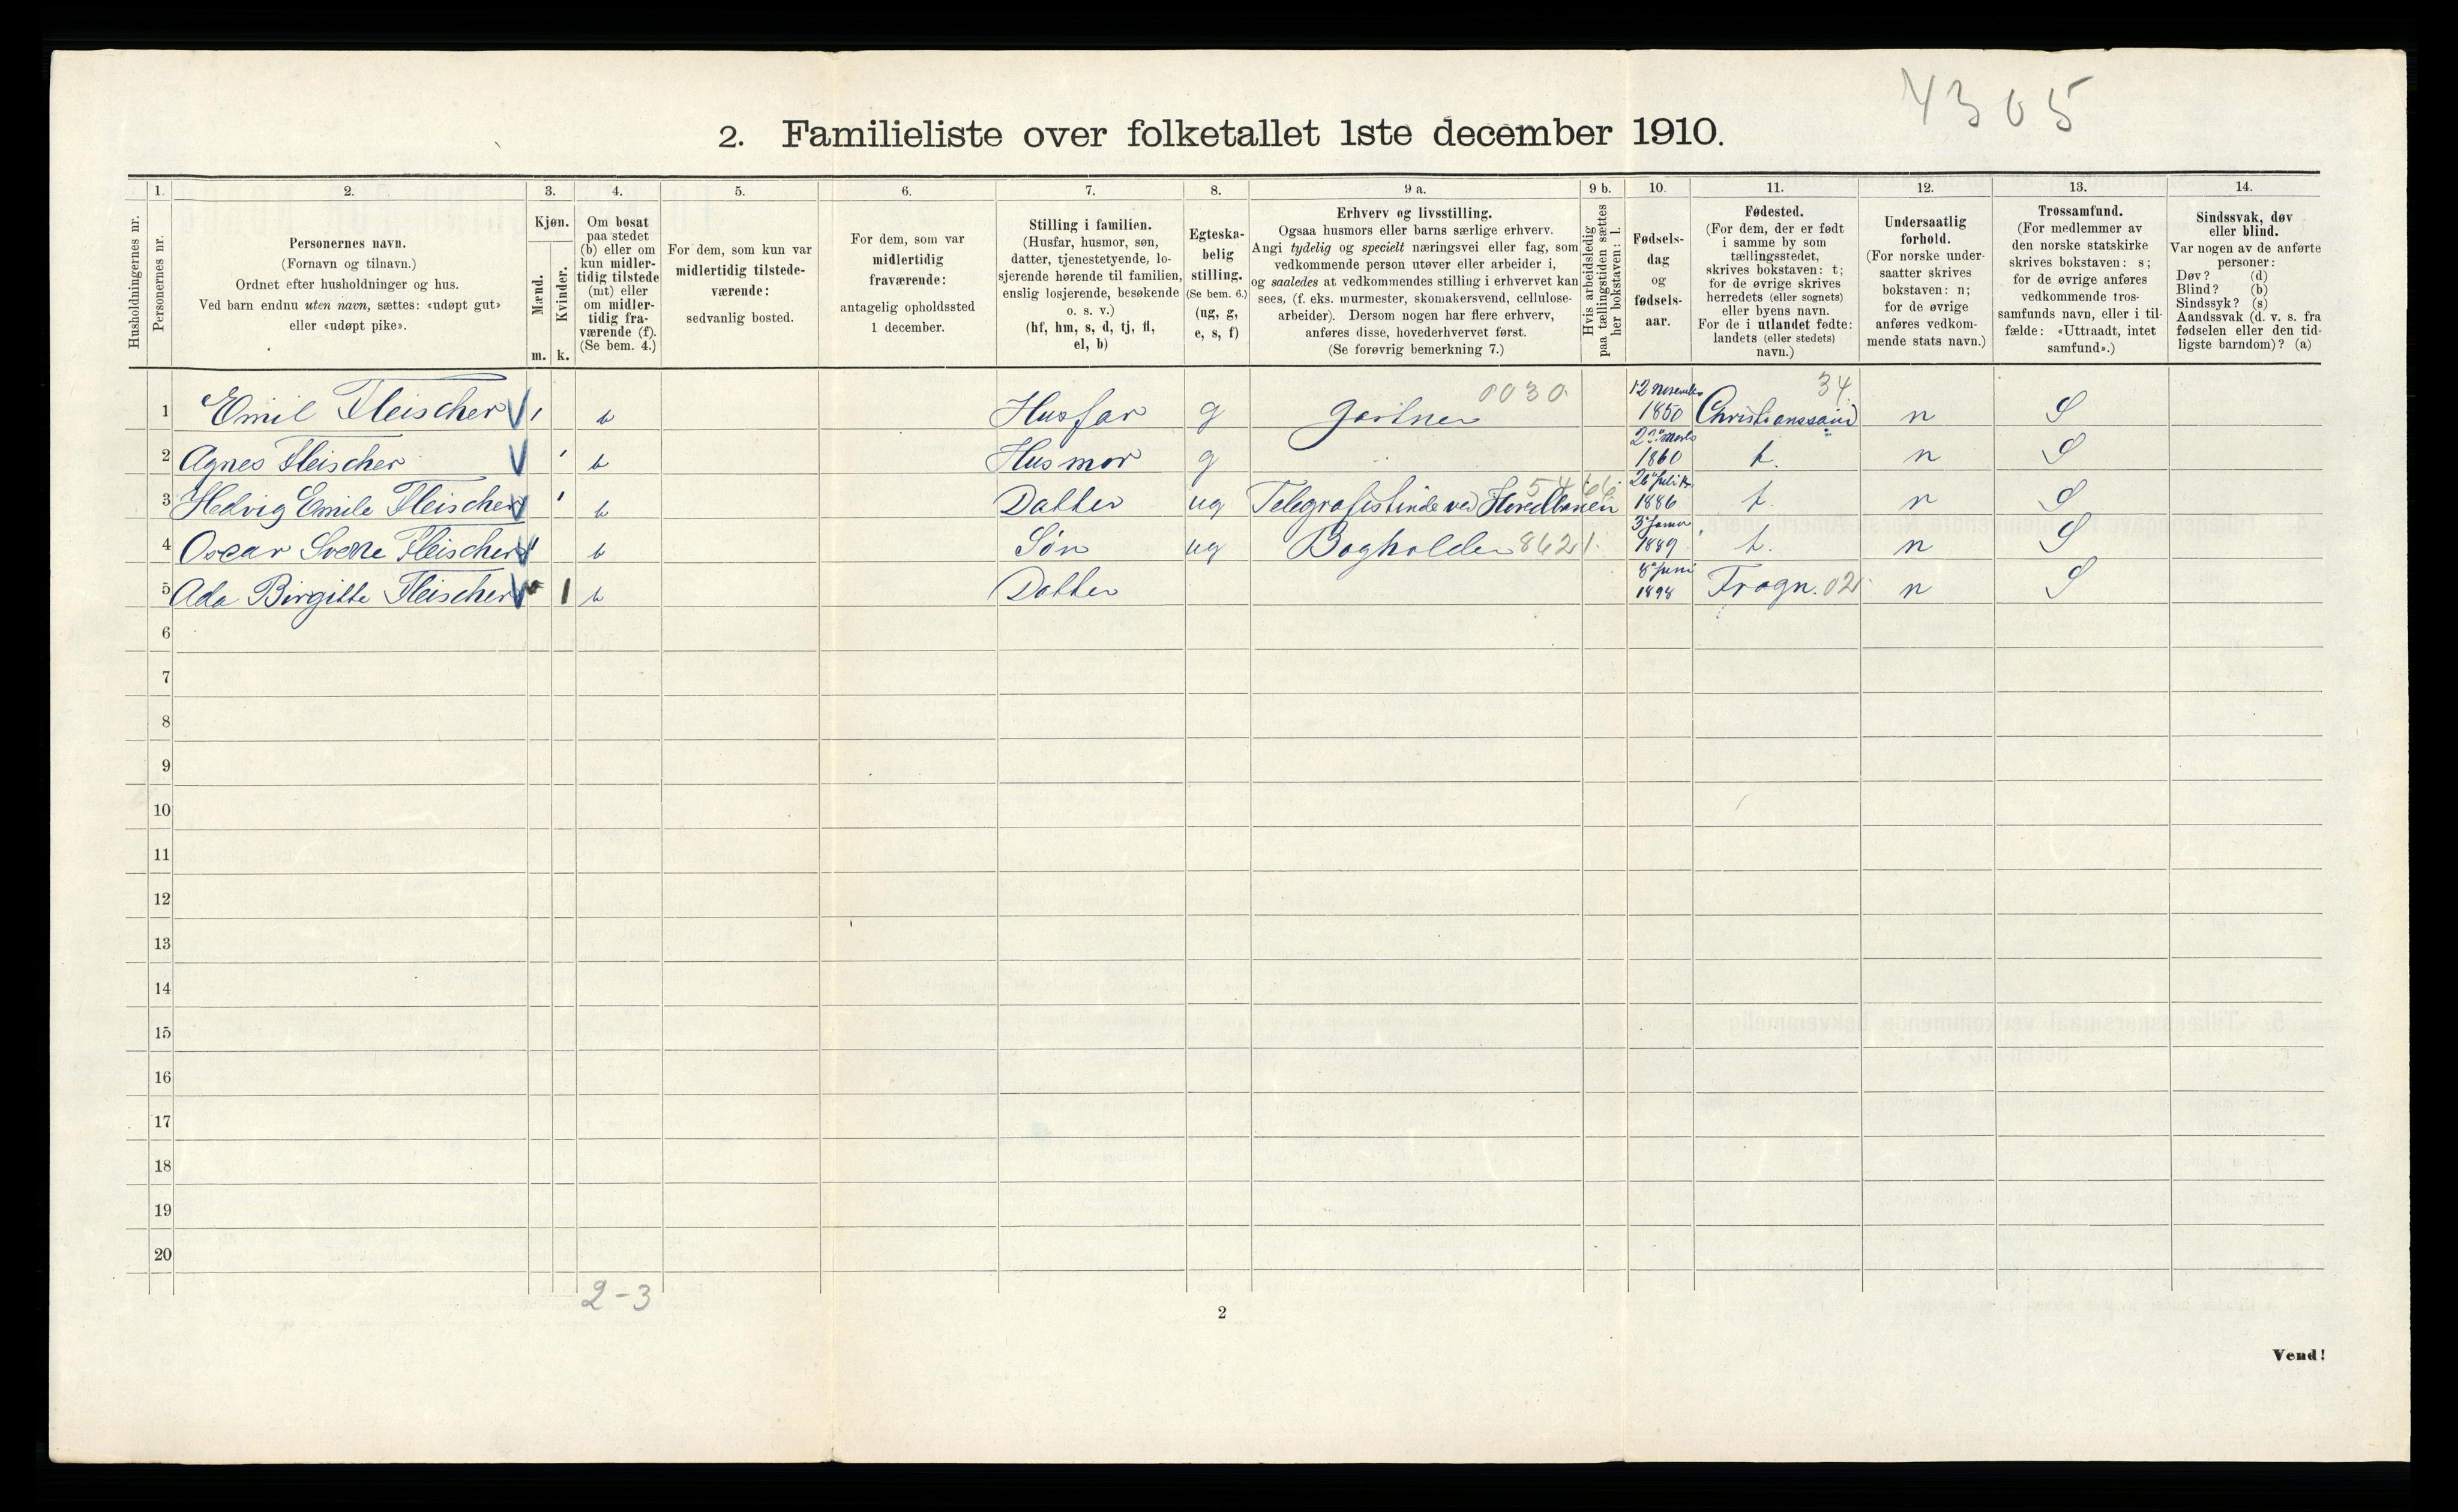 4305
2. Familieliste over folketallet 1ste december 1910.
1. 2. 3. 4. 5. 6. 7. 8. 9 a. 9 b. 10. 11. 12. 13. 14.
Husholdningernes nr.
Personernes nr.
Personernes navn.
(Fornavn og tilnavn.)
Ordnet efter husholdninger og hus.
Ved barn endnu uten navn, sættes: «udøpt gut»
eller «udøpt pike».
Kjøn.
Mænd.
Kvinder.
m. k.
Om bosat
paa stedet
(b) eller om
kun midler-
tidig tilstede
(mt) eller
om midler-
tidig fra-
værende (f).
(Se bem. 4.)
For dem, som kun var
midlertidig tilstede-
værende:
sedvanlig bosted.
For dem, som var
midlertidig
fraværende:
antagelig opholdssted
1 december.
Stilling i familien.
(Husfar, husmor, søn,
datter, tjenestetyende, lo-
sjerende hørende til familien,
enslig losjerende, besøkende
o. s. v.)
(hf, hm, s, d, tj, fl,
el, b)
Egteska-
belig
stilling.
(Se bem. 6.)
(ug, g,
e, s, f)
Erhverv og livsstilling.
Ogsaa husmors eller barns særlige erhverv.
Angi tydelig og specielt næringsvei eller fag, som
vedkommende person utøver eller arbeider i,
og saaledes at vedkommendes stilling i erhvervet kan
sees, (f. eks. murmester, skomakersvend, cellulose-
arbeider). Dersom nogen har flere erhverv,
anføres disse, hovederhvervet først.
(Se forøvrig bemerkning 7.)
Hvis arbeidsledig
paa tællingstiden sættes
her bokstaven: l.
Fødsels-
dag
og
fødsels-
aar.
Fødested.
(For dem, der er født
i samme by som
tællingsstedet,
skrives bokstaven: t;
for de øvrige skrives
herredets (eller sognets)
eller byens navn.
For de i utlandet fødte:
landets (eller stedets)
navn.)
Undersaatlig
forhold.
(For norske under-
saatter skrives
bokstaven: n;
for de øvrige
anføres vedkom-
mende stats navn.)
Trossamfund.
(For medlemmer av
den norske statskirke
skrives bokstaven: s;
for de øvrige anføres
vedkommende tros-
samfunds navn, eller i til-
fælde: «Uttraadt, intet
samfund».)
Sindssvak, døv
eller blind.
Var nogen av de anførte
personer:
Døv? (d)
Blind? (b)
Sindssyk? (s)
Aandssvak (d. v. s. fra
fødselen eller den tid-
ligste barndom)? (a)
1 Emil Fleischer V 1 b Husfar g Gartner 0030 12 November 1850 Christianssand 34 n S
2 Agnes Fleischer V 1 b Husmor g 1860 t. n S
3 Hedvig Emile Fleischer V 1 b Datter ug Telegrafistinde ved Hovedbanen 5466 26 Juli 1886 t. n S
4 Oscar Fleischer V 1 b Søn ug Bogholder 8621. 3 Januar 1889 t. n S
5 Ada Birgitte Fleischer V 1 b Datter 8 Juni 1898 Frogn. 02 n S
6
7
8
9
10
11
12
13
14
15
16
17
18
19
20
2-3
2
Vend!